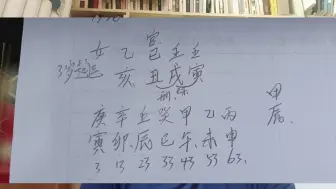 官
女 乙 己 壬 壬
3岁起运 亥 丑 戌 寅
刑
庚 辛 壬 癸 甲 乙 丙 甲
寅 卯 辰 巳 午 未 申 辰
3 13 23 33 43 53 63